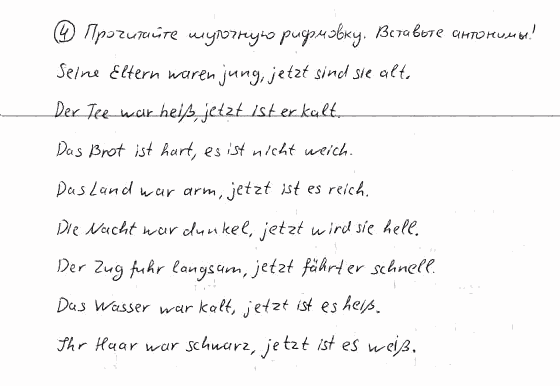 ④ Прочитайте шуточную рифмовку. Вставьте антонимы!
Seine Eltern waren jung, jetzt sind sie alt.
Der Tee war heiß, jetzt ist er kalt.
Das Brot ist hart, es ist nicht weich.
Das Land war arm, jetzt ist es reich.
Die Nacht war dunkel, jetzt wird sie hell.
Der Zug fuhr langsam, jetzt fährt er schnell.
Das Wasser war kalt, jetzt ist es heiß.
Ihr Haar war schwarz, jetzt ist es weiß.